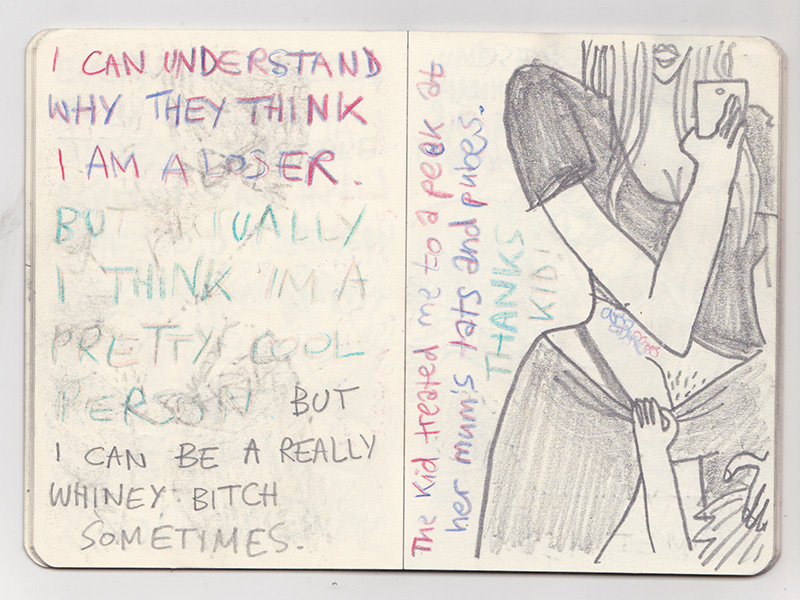 I CAN UNDERSTAND
WHY THEY THINK
I AM A LOSER.
BUT ACTUALLY
I THINK I'M A
PRETTY COOL
PERSON BUT
I CAN BE A REALLY
WHINEY BITCH
SOMETIMES.
The kid treated me to a peek at
her mum's tats and pubes.
THANKS
KID!